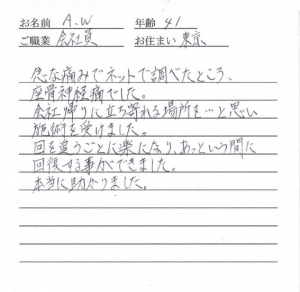 お名前 A.W 年齢 41
ご職業 会社員 お住まい 東京
急な痛みでネットで調べたところ、
座骨神経痛でした。
会社帰りに立ち寄れる場所を…と思い
施術を受けました。
回を追うごとに楽になり、あっという間に
回復する事ができました。
本当に助かりました。